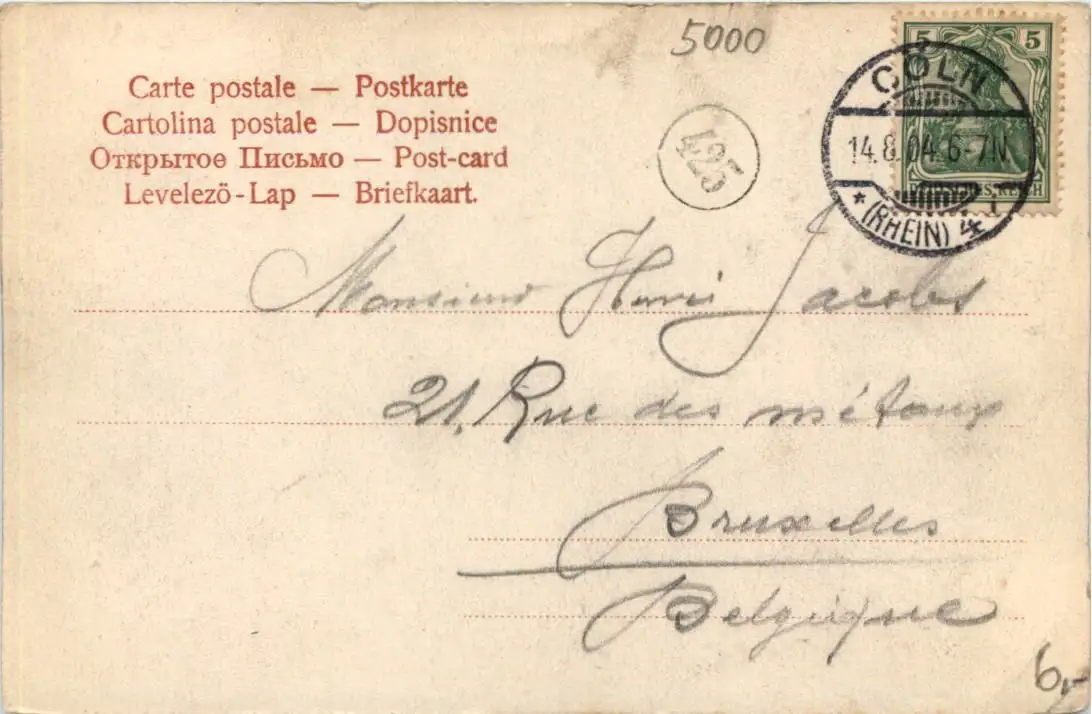 5000
Carte postale — Postkarte
Cartolina postale — Dopisnice
Открытое Письмо — Post-card
Levelező-Lap — Briefkaart.
425
5 5
CÖLN
14.8.04.6-7N.
* (RHEIN) 4
DEUTSCHES REICH
Monsieur Henri Jacobs
21, Rue des métaux
Bruxelles
Belgique
6,-